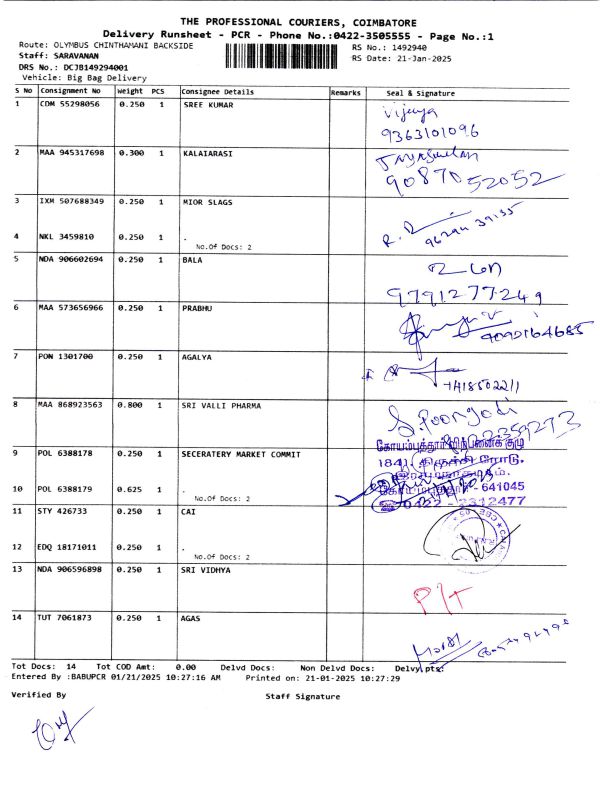 THE PROFESSIONAL COURIERS, COIMBATORE
Delivery Runsheet - PCR - Phone No.:0422-3505555 - Page No.:1
Route: OLYMBUS CHINTHAMANI BACKSIDE
RS No.: 1492940
Staff: SARAVANAN
RS Date: 21-Jan-2025
DRS No.: DCJB149294001
Vehicle: Big Bag Delivery
S No Consignment No Weight PCS Consignee Details Remarks Seal & Signature
1 CDM 55298056 0.250 1 SREE KUMAR Vijaya
9363101096
2 MAA 945317698 0.300 1 KALAIARASI
90870 52052
3 IXM 507688349 0.250 1 MIOR SLAGS
4 NKL 3459810 0.250 1 .
No.Of Docs: 2
5 NDA 906602694 0.250 1 BALA
9791277249
6 MAA 573656966 0.250 1 PRABHU
9092164685
7 PON 1301700 0.250 1 AGALYA
7418502211
8 MAA 868923563 0.800 1 SRI VALLI PHARMA S. Poongodi
9 POL 6388178 0.250 1 SECERATERY MARKET COMMIT
கோயம்புத்தூர் விற்பனைக் குழு
1841, திருச்சி ரோடு,
10 POL 6388179 0.625 1 . 641045
No.Of Docs: 2
0422 - 2312477
11 STY 426733 0.250 1 CAI
12 EDQ 18171011 0.250 1 .
No.Of Docs: 2
13 NDA 906596898 0.250 1 SRI VIDHYA P/T
14 TUT 7061873 0.250 1 AGAS
Tot Docs: 14 Tot COD Amt: 0.00 Delvd Docs: Non Delvd Docs: Delvy pts:
Entered By :BABUPCR 01/21/2025 10:27:16 AM Printed on: 21-01-2025 10:27:29
Verified By Staff Signature